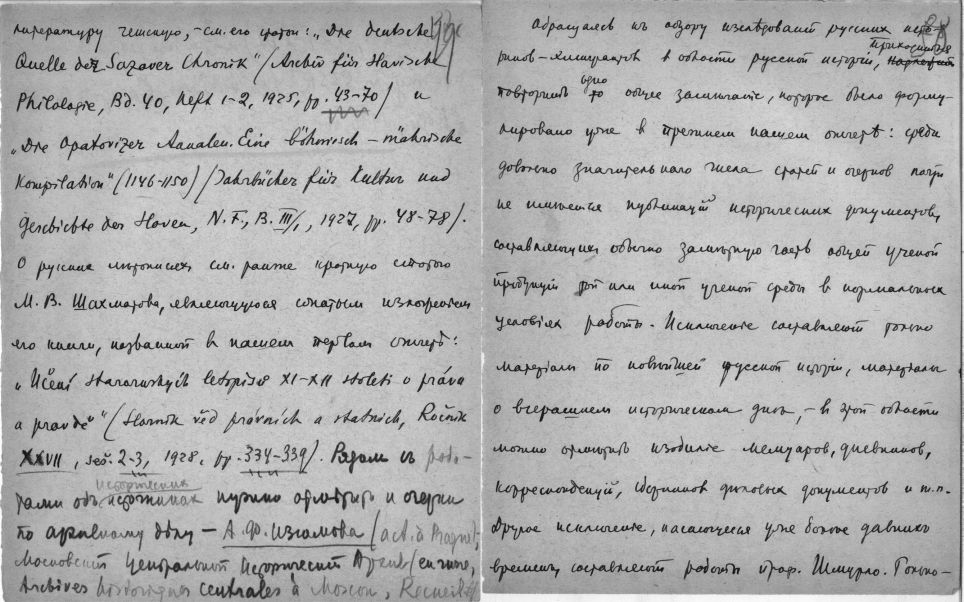 литературу чешскую, – см. его статьи: „Die deutsche
Quelle der Sazaver Chronik“ (Archiv für slavische
Philologie, Bd. 40, Heft 1-2, 1925, pp. 43-70) и
„Die Opatovizer Annalen. Eine böhmisch – mährische
Kompilation“ (1146-1150) (Jahrbücher für Kultur und
Geschichte der Slaven, N. F., B. III/1, 1927, pp. 48-78).
О русских летописях см. также краткую статью
М. В. Шахматова, являющуюся сжатым изложением
его книги, названной в нашем первом очеркѣ:
„Učení staroruských letopisů XI-XII století o právu
a pravdě“ (Sborník věd právních a státních, Ročník
XXVII, seš. 2-3, 1928, pp. 334-339). Рядом с рабо-
историческим
тами объ источниках нужно отметить и очерки
по архивному дѣлу – А. Ф. Изюмова (act. à Prague),
Московский Центральный Исторический Архив (en russe,
Archives historiques centrales à Moscou, Recueil
28
Обращаясь къ обзору изслѣдований русских исто-
приходится
риков-эмигрантов в области русской истории,
одно
повторить то общее замѣчание, которое было форму-
лировано уже в прежнем нашем очеркѣ: среди
довольно значительного числа статей и очерков почти
не имѣется публикаций исторических документов,
составляющих обычно замѣтную часть общей ученой
продукции той или иной ученой среды в нормальных
условіях работы. Исключение составляют только
материалы по новѣйшей русской истории, материалы
о вчерашнем историческом дне, – в этой области
можно отметить изобилие мемуаров, дневников,
корреспонденций, сборников дѣловых документов и т.п.
Другое исключение, касающееся уже более давних
времен, составляют работы проф. Шмурло. Только-